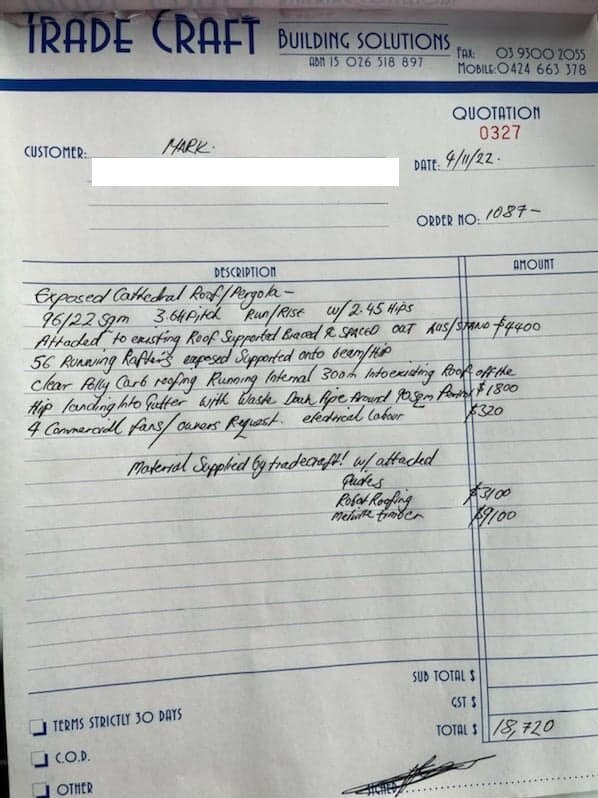 TRADE CRAFT BUILDING SOLUTIONS
ABN 15 026 518 897
FAX: 03 9300 2055
MOBILE: 0424 663 378
QUOTATION
0327
CUSTOMER: MARK.
DATE: 4/11/22.
ORDER NO: 1087-
DESCRIPTION AMOUNT
Exposed Cathedral Roof/Pergola -
96/22 Sqm 3.64 Pitch Run/Rise w/ 2.45 Hips
Attached to existing Roof Supported Braced & SPACED OUT AUS/STAND $4400
56 Running Rafters exposed Supported onto beam/Hip
clear Polly Carb roofing Running Internal 300m Into existing Roof off the
Hip landing Into Gutter with Waste Down Pipe Around 90sqm $1800
4 Commercial fans/owners Request. electrical labour $320
Material Supplied by tradecraft! w/ attached
Quotes
Robot Roofing $3100
timber $9100
SUB TOTAL $
GST $
TOTAL $ 18,720
TERMS STRICTLY 30 DAYS
C.O.D.
OTHER
SIGNED